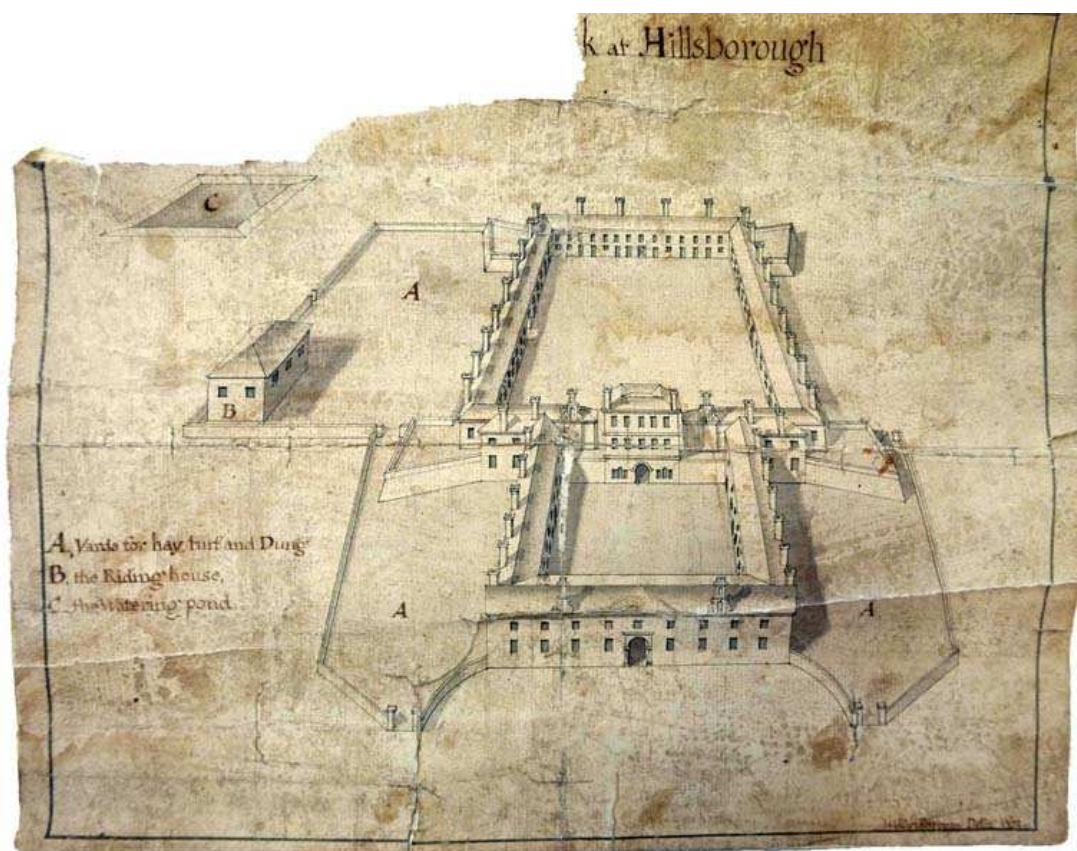 k at Hillsborough
C
A
B
A, Yards for hay, turf and Dung
B, the Riding house,
C, the Watering pond
A
A